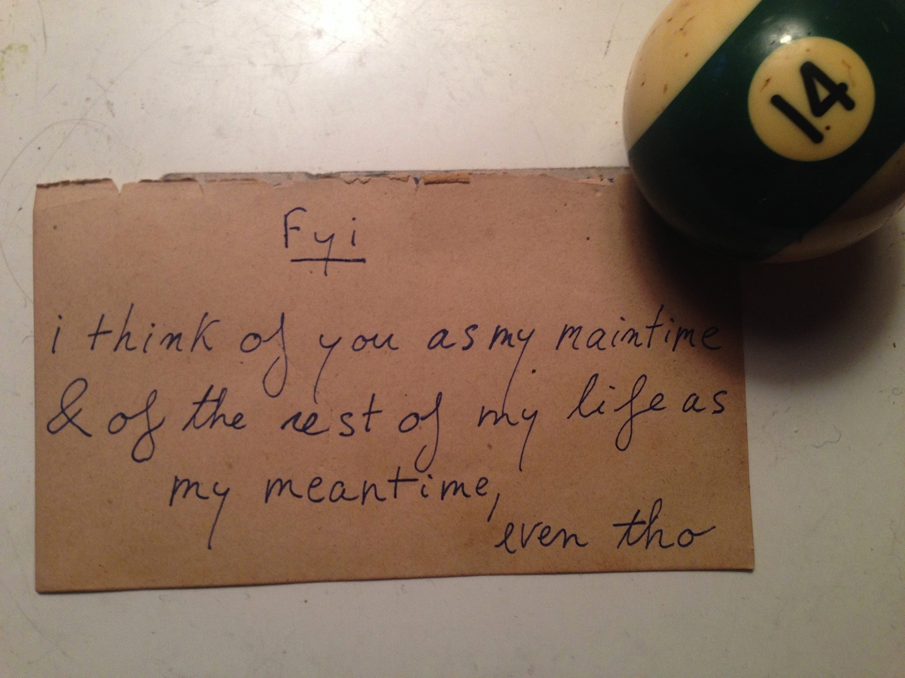 14
Fyi
i think of you as my maintime
& of the rest of my life as
my meantime,
even tho